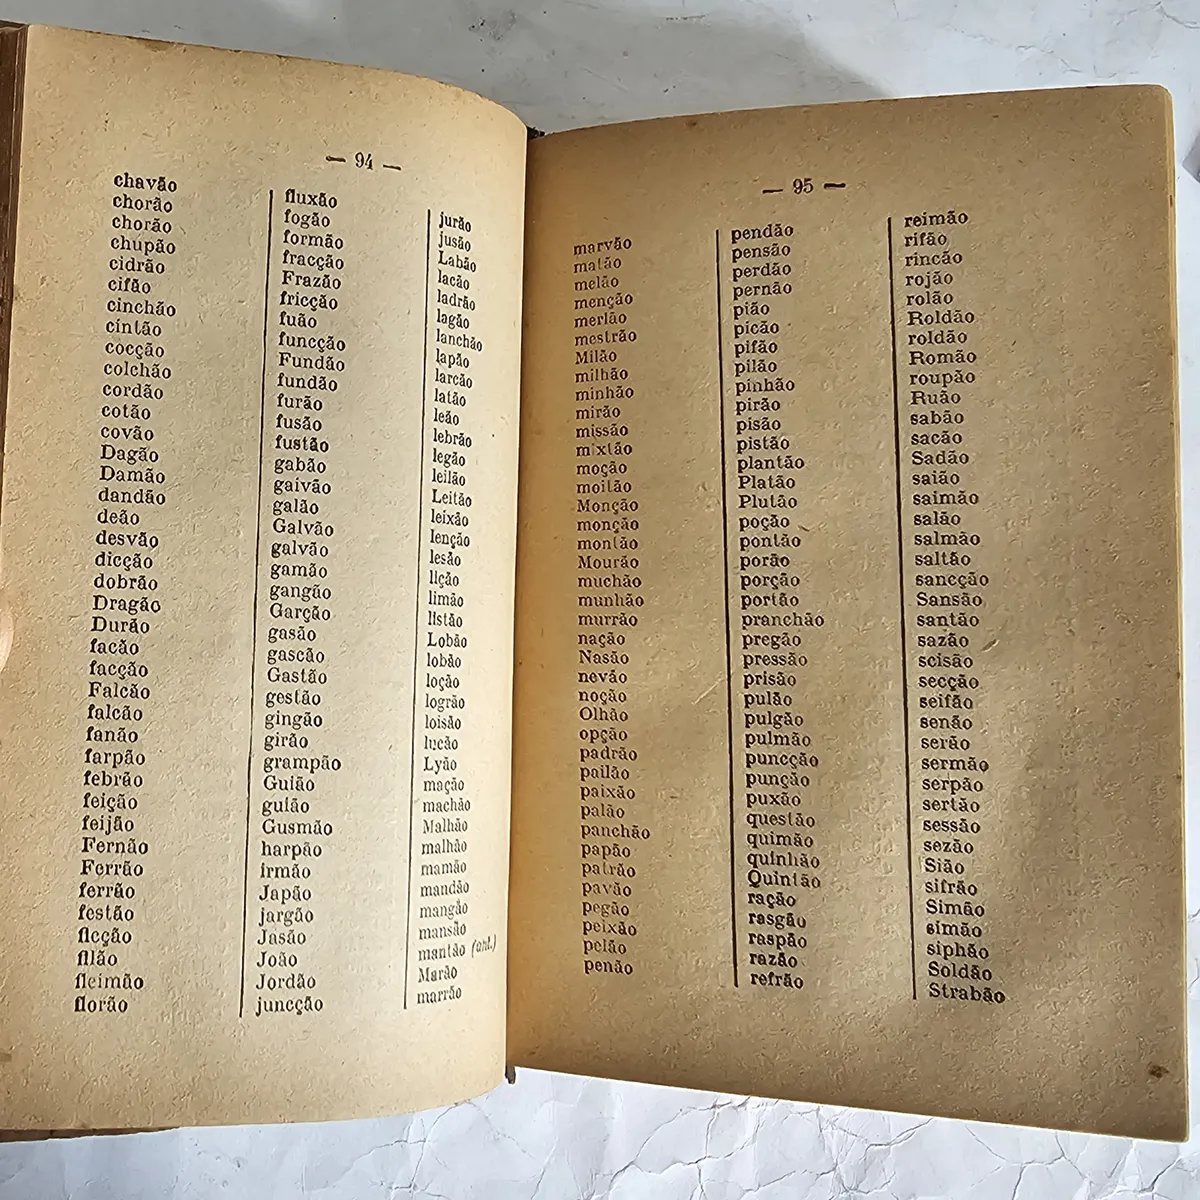 — 94 —
chavão
chorão
chorão
chupão
cidrão
cifão
cinchão
cintão
cocção
colchão
cordão
cotão
covão
Dagão
Damão
dandão
deão
desvão
dicção
dobrão
Dragão
Durão
facão
facção
Falcão
falcão
fanão
farpão
febrão
feição
feijão
Fernão
Ferrão
ferrão
festão
ficção
filão
fleimão
florão
fluxão
fogão
formão
fracção
Frazão
fricção
fuão
funcção
Fundão
fundão
furão
fusão
fustão
gabão
gaivão
galão
Galvão
galvão
gamão
gangão
Garção
gasão
gascão
Gastão
gestão
gingão
girão
grampão
Guião
guião
Gusmão
harpão
irmão
Japão
jargão
Jasão
João
Jordão
juncção
jurão
jusão
Labão
lacão
ladrão
lagão
lanchão
lapão
larcão
latão
leão
lebrão
legão
leilão
Leitão
leixão
lenção
lesão
lição
limão
listão
Lobão
lobão
loção
logrão
loisão
lucão
Lyão
mação
machão
Malhão
malhão
mamão
mandão
mangão
mansão
mantão (ant.)
Marão
marrão
— 95 —
marvão
matão
melão
menção
merlão
mestrão
Milão
milhão
minhão
mirão
missão
mixtão
moção
moitão
Monção
monção
montão
Mourão
muchão
munhão
murrão
nação
Nasão
nevão
noção
Olhão
opção
padrão
pailão
paixão
palão
panchão
papão
patrão
pavão
pegão
peixão
pelão
penão
pendão
pensão
perdão
pernão
pião
picão
pifão
pilão
pinhão
pirão
pisão
pistão
plantão
Platão
Plutão
poção
pontão
porão
porção
portão
pranchão
pregão
pressão
prisão
pulão
pulgão
pulmão
puncção
punção
puxão
questão
quimão
quinhão
Quintão
ração
rasgão
raspão
razão
refrão
reimão
rifão
rincão
rojão
rolão
Roldão
roldão
Romão
roupão
Ruão
sabão
sacão
Sadão
saião
saimão
salão
salmão
saltão
sancção
Sansão
santão
sazão
scisão
secção
seifão
senão
serão
sermão
serpão
sertão
sessão
sezão
Sião
sifrão
Simão
simão
siphão
Soldão
Strabão